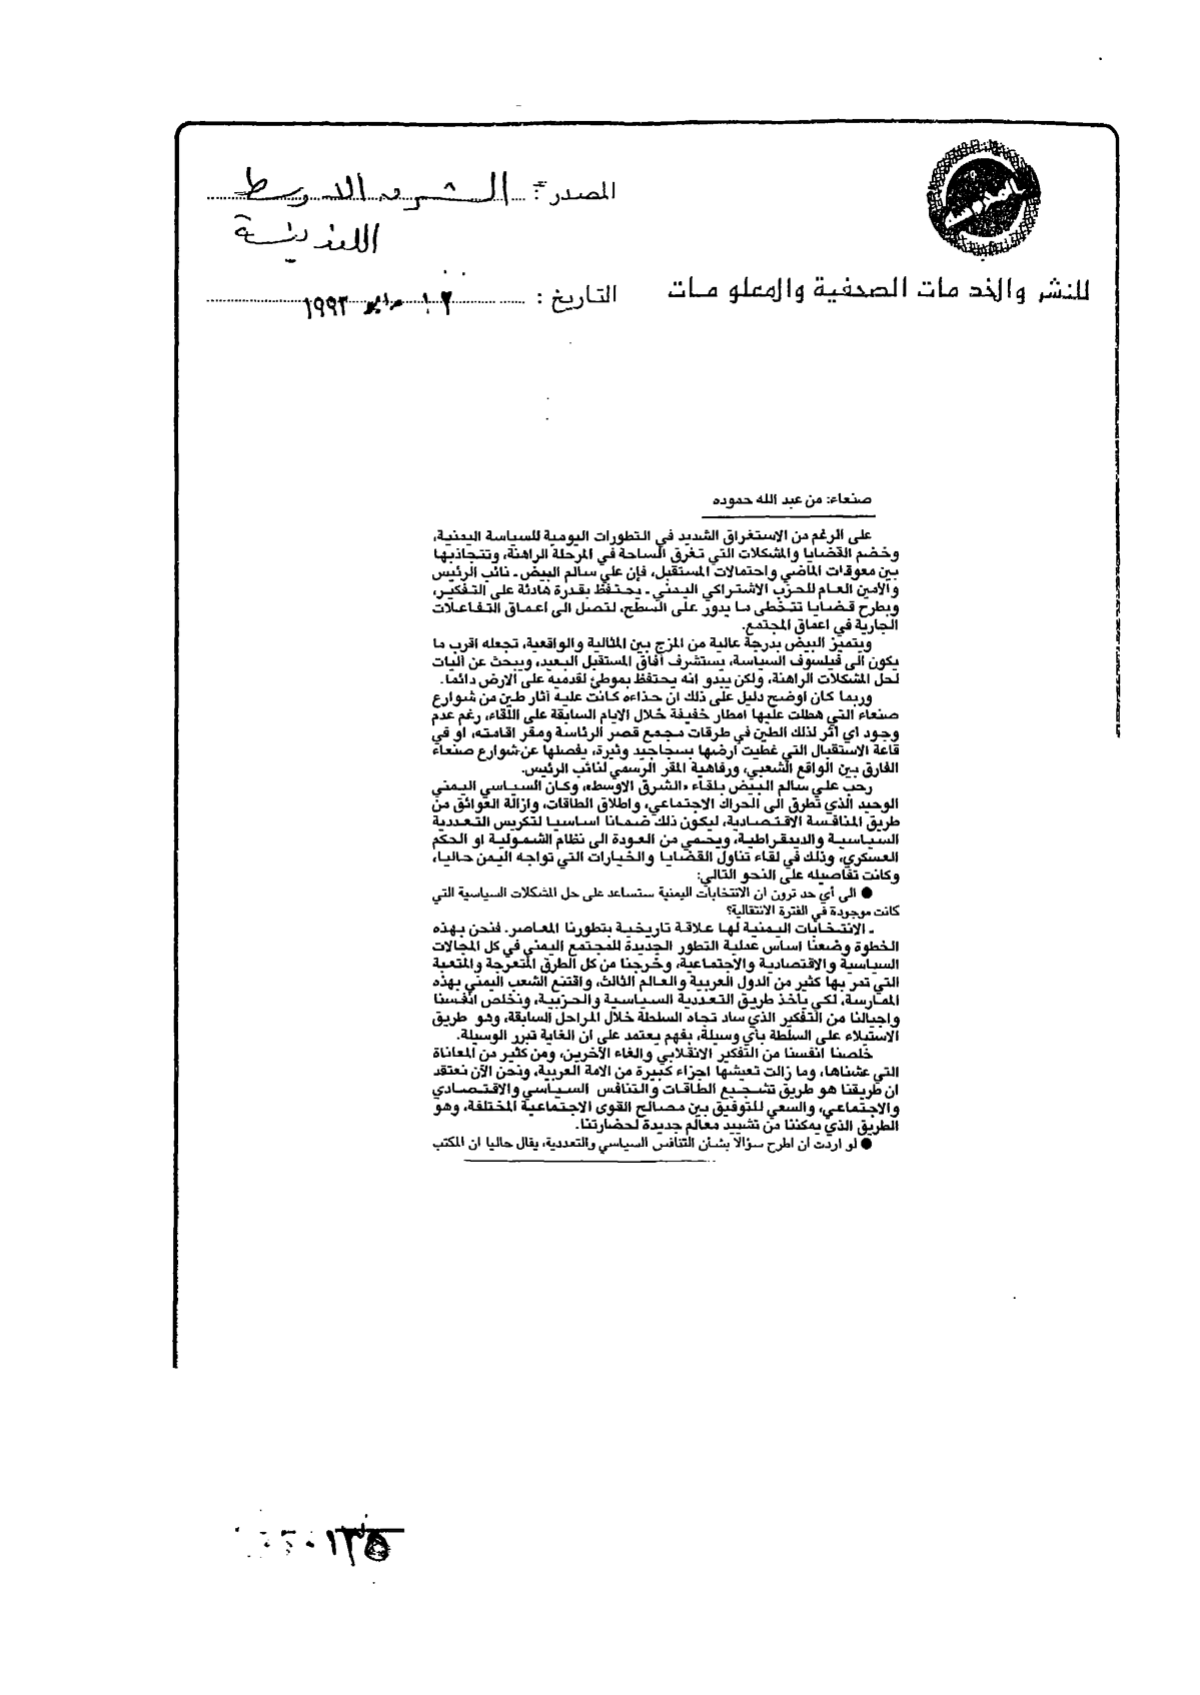 المصدر : الشرق الاوسط
اللندنية
للنشر والخدمات الصحفية والمعلومات
التاريخ : مايو ١٩٩٣
صنعاء: من عبد الله حموده
على الرغم من الاستغراق الشديد في التطورات اليومية للسياسة اليمنية،
وخضم القضايا والمشكلات التي تغرق الساحة في المرحلة الراهنة، وتتجاذبها
بين معوقات الماضي واحتمالات المستقبل، فإن علي سالم البيض ـ نائب الرئيس
والامين العام للحزب الاشتراكي اليمني ـ يحتفظ بقدرة هادئة على التفكير،
وبطرح قضايا تتخطى ما يدور على السطح، لتصل الى اعماق التفاعلات
الجارية في اعماق المجتمع.
ويتميز البيض بدرجة عالية من المزج بين المثالية والواقعية، تجعله اقرب ما
يكون الى فيلسوف السياسة، يستشرف آفاق المستقبل البعيد، ويبحث عن آليات
لحل المشكلات الراهنة، ولكن يبدو انه يحتفظ بموطئ لقدميه على الارض دائما.
وربما كان اوضح دليل على ذلك ان حذاءه كانت عليه آثار طين من شوارع
صنعاء التي هطلت عليها امطار خفيفة خلال الايام السابقة على اللقاء، رغم عدم
وجود اي اثر لذلك الطين في طرقات مجمع قصر الرئاسة ومقر اقامته، او في
قاعة الاستقبال التي غطيت ارضها بسجاجيد وثيرة، يفصلها عن شوارع صنعاء
الفارق بين الواقع الشعبي، ورفاهية المقر الرسمي لنائب الرئيس.
رحب علي سالم البيض بلقاء «الشرق الاوسط»، وكان السياسي اليمني
الوحيد الذي تطرق الى الحراك الاجتماعي، واطلاق الطاقات، وازالة العوائق من
طريق المنافسة الاقتصادية، ليكون ذلك ضمانا اساسيا لتكريس التعددية
السياسية والديمقراطية، ويحمي من العودة الى نظام الشمولية او الحكم
العسكري، وذلك في لقاء تناول القضايا والخيارات التي تواجه اليمن حاليا،
وكانت تفاصيله على النحو التالي:
● الى أي حد ترون ان الانتخابات اليمنية ستساعد على حل المشكلات السياسية التي
كانت موجودة في الفترة الانتقالية؟
ـ الانتخابات اليمنية لها علاقة تاريخية بتطورنا المعاصر. فنحن بهذه
الخطوة وضعنا اساس عملية التطور الجديدة للمجتمع اليمني في كل المجالات
السياسية والاقتصادية والاجتماعية، وخرجنا من كل الطرق المتعرجة والمتعبة
التي تمر بها كثير من الدول العربية والعالم الثالث، واقتنع الشعب اليمني بهذه
الممارسة، لكي يأخذ طريق التعددية السياسية والحزبية، ونخلص انفسنا
واجيالنا من التفكير الذي ساد تجاه السلطة خلال المراحل السابقة، وهو طريق
الاستيلاء على السلطة بأي وسيلة، بفهم يعتمد على ان الغاية تبرر الوسيلة.
خلصنا انفسنا من التفكير الانقلابي والغاء الآخرين، ومن كثير من المعاناة
التي عشناها، وما زالت تعيشها اجزاء كبيرة من الامة العربية، ونحن الآن نعتقد
ان طريقنا هو طريق تشجيع الطاقات والتنافس السياسي والاقتصادي
والاجتماعي، والسعي للتوفيق بين مصالح القوى الاجتماعية المختلفة، وهو
الطريق الذي يمكننا من تشييد معالم جديدة لحضارتنا.
● لو اردت ان اطرح سؤالا بشأن التنافس السياسي والتعددية، يقال حاليا ان المكتب